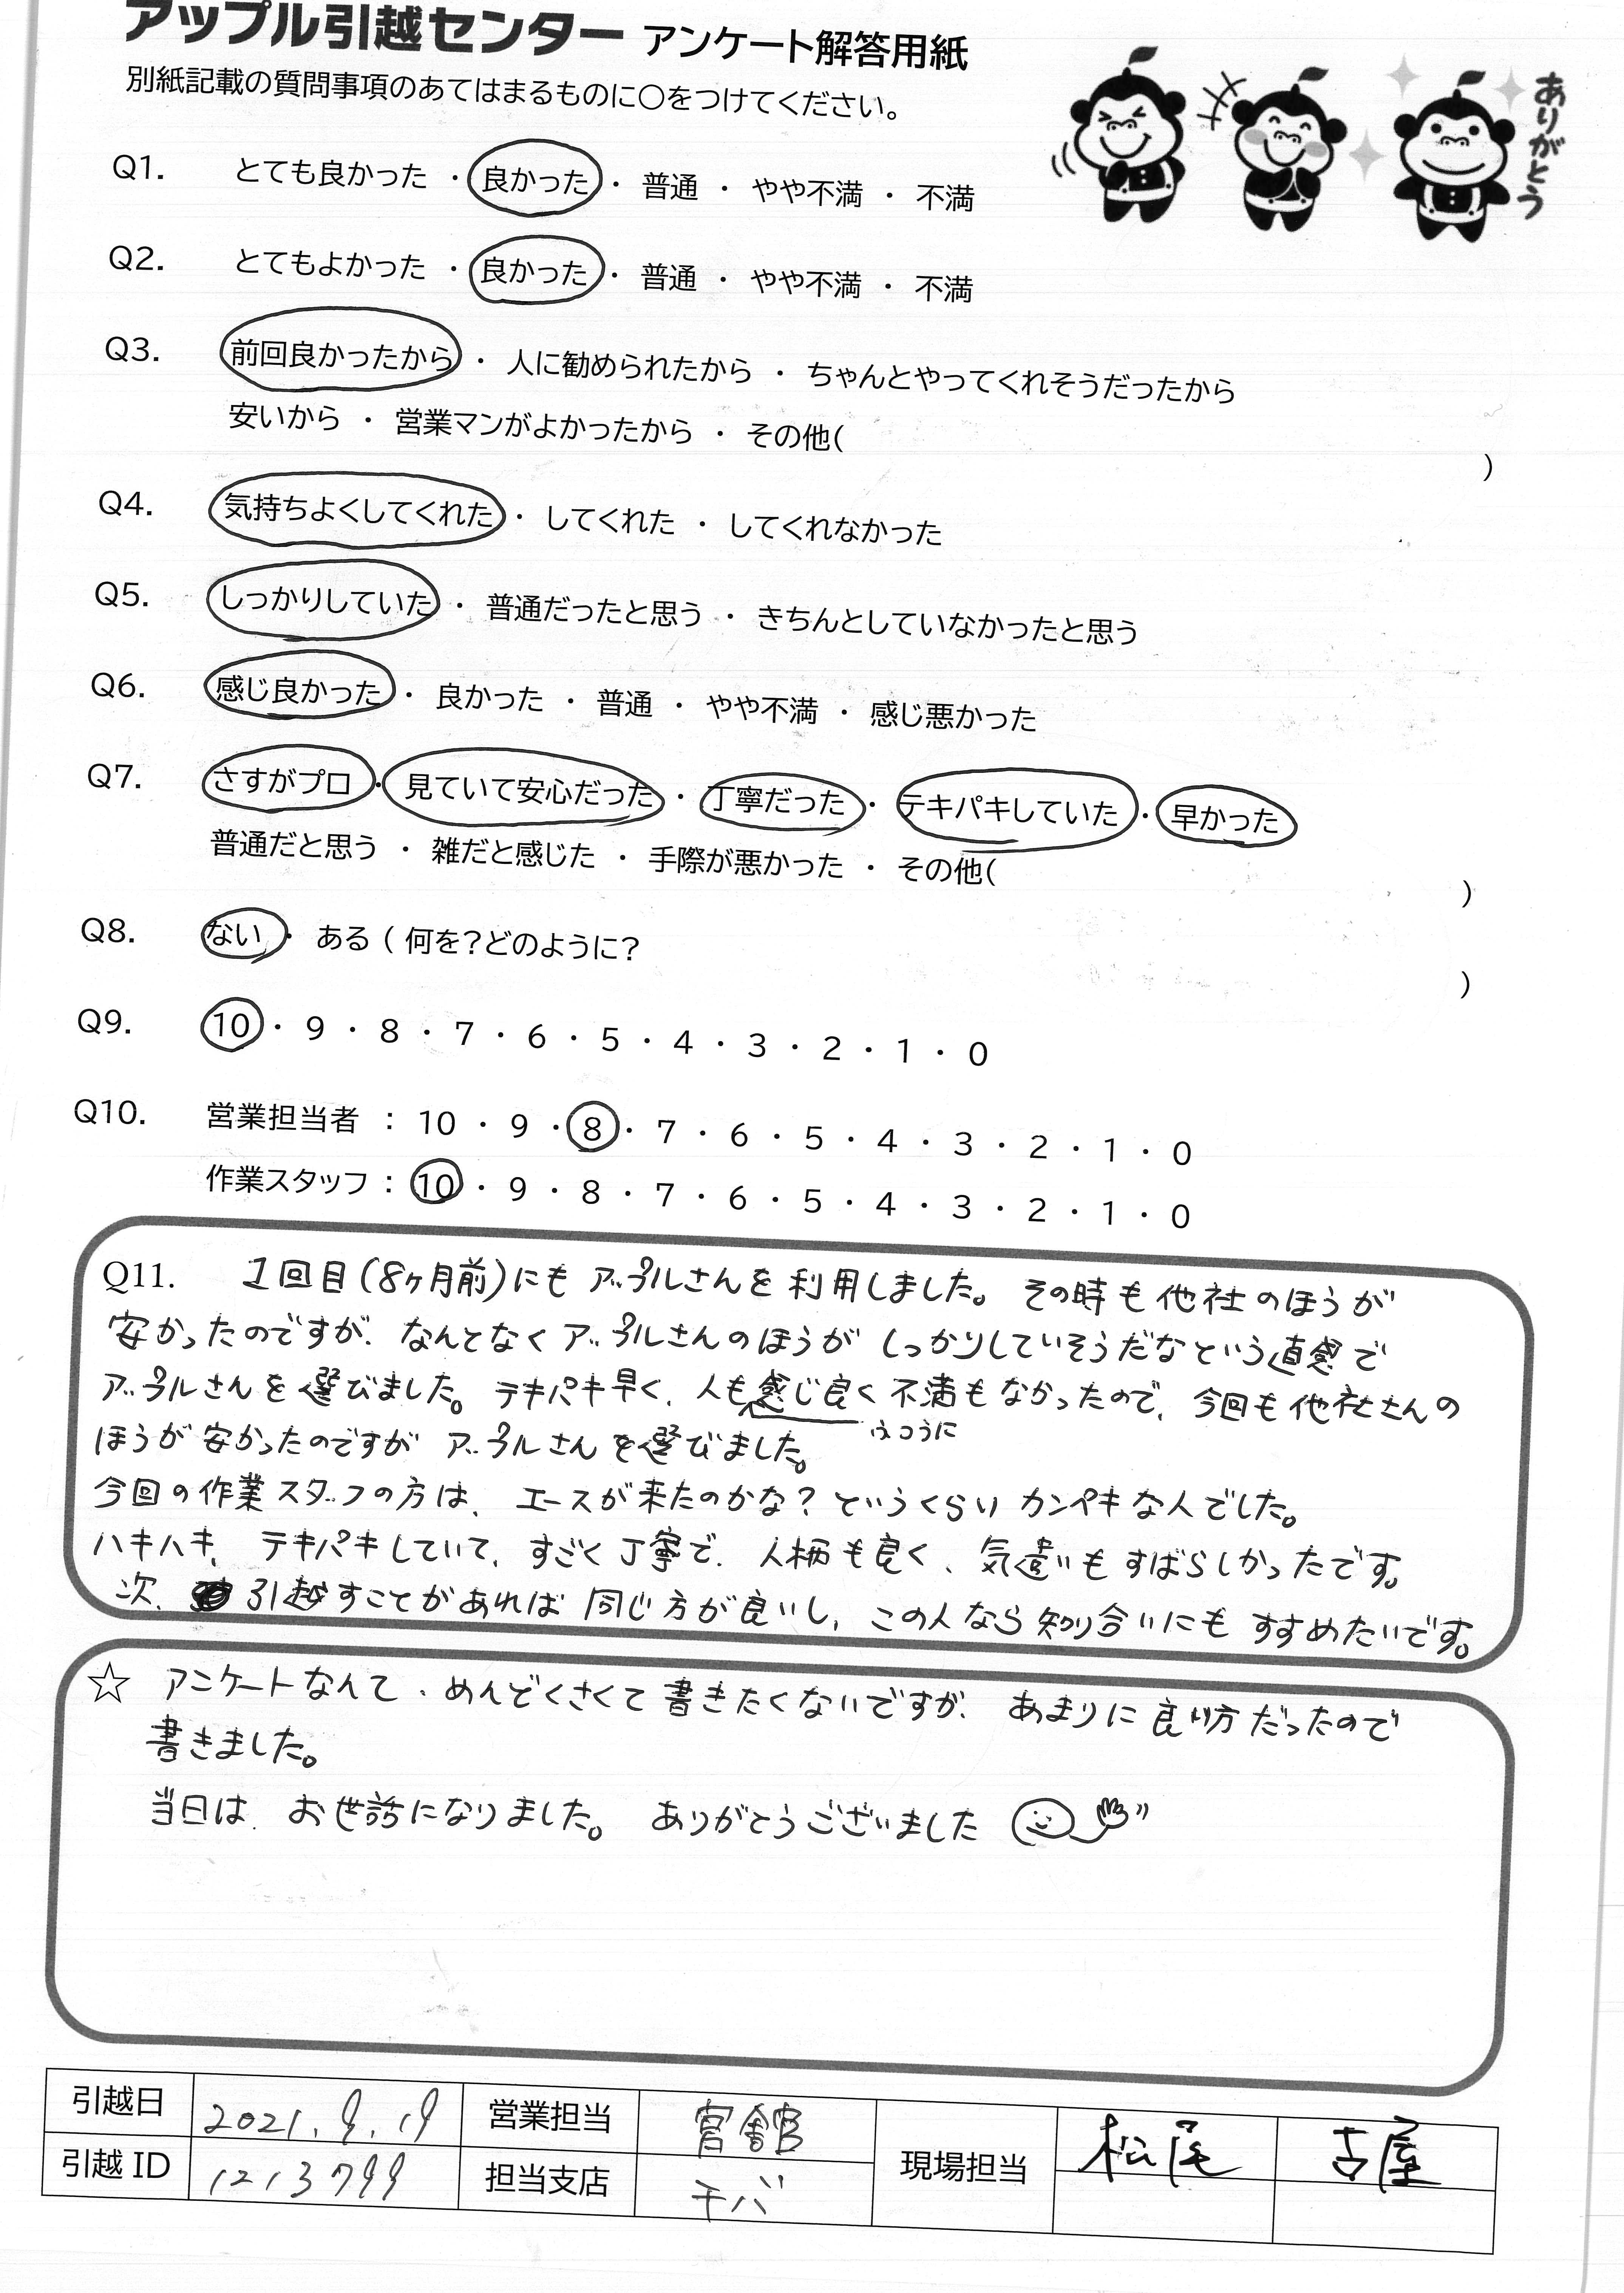 アップル引越センター アンケート解答用紙
別紙記載の質問事項のあてはまるものに○をつけてください。
ありがとう
Q1. とても良かった ・ 良かった ・ 普通 ・ やや不満 ・ 不満
Q2. とてもよかった ・ 良かった ・ 普通 ・ やや不満 ・ 不満
Q3. 前回良かったから ・ 人に勧められたから ・ ちゃんとやってくれそうだったから
安いから ・ 営業マンがよかったから ・ その他( )
Q4. 気持ちよくしてくれた ・ してくれた ・ してくれなかった
Q5. しっかりしていた ・ 普通だったと思う ・ きちんとしていなかったと思う
Q6. 感じ良かった ・ 良かった ・ 普通 ・ やや不満 ・ 感じ悪かった
Q7. さすがプロ ・ 見ていて安心だった ・ 丁寧だった ・ テキパキしていた ・ 早かった
普通だと思う ・ 雑だと感じた ・ 手際が悪かった ・ その他( )
Q8. ない ・ ある ( 何を?どのように? )
Q9. 10 ・ 9 ・ 8 ・ 7 ・ 6 ・ 5 ・ 4 ・ 3 ・ 2 ・ 1 ・ 0
Q10. 営業担当者 : 10 ・ 9 ・ 8 ・ 7 ・ 6 ・ 5 ・ 4 ・ 3 ・ 2 ・ 1 ・ 0
作業スタッフ : 10 ・ 9 ・ 8 ・ 7 ・ 6 ・ 5 ・ 4 ・ 3 ・ 2 ・ 1 ・ 0
Q11. 1回目(8ヶ月前)にも アップルさんを 利用しました。 その時も他社のほうが
安かったのですが、なんとなくアップルさんのほうが しっかりしていそうだなという直感で
アップルさんを選びました。テキパキ早く、人も感じ良く不満もなかったので、今回も他社さんの
ほうが安かったのですがアップルさんを選びました。
今回の作業スタッフの方は、エースが来たのかな?というくらいカンペキな人でした。
ハキハキ、テキパキしていて、すごく丁寧で、人柄も良く、気遣いもすばらしかったです。
次、引越すことがあれば 同じ方が良いし、この人なら知り合いにも すすめたいです。
☆ アンケートなんて、めんどくさくて書きたくないですが、あまりに良い方だったので
書きました。
当日は、お世話になりました。 ありがとうございました
引越日 2021.9.19 営業担当 宮舘 現場担当 松尾 古屋
引越 ID 1213799 担当支店 千バ